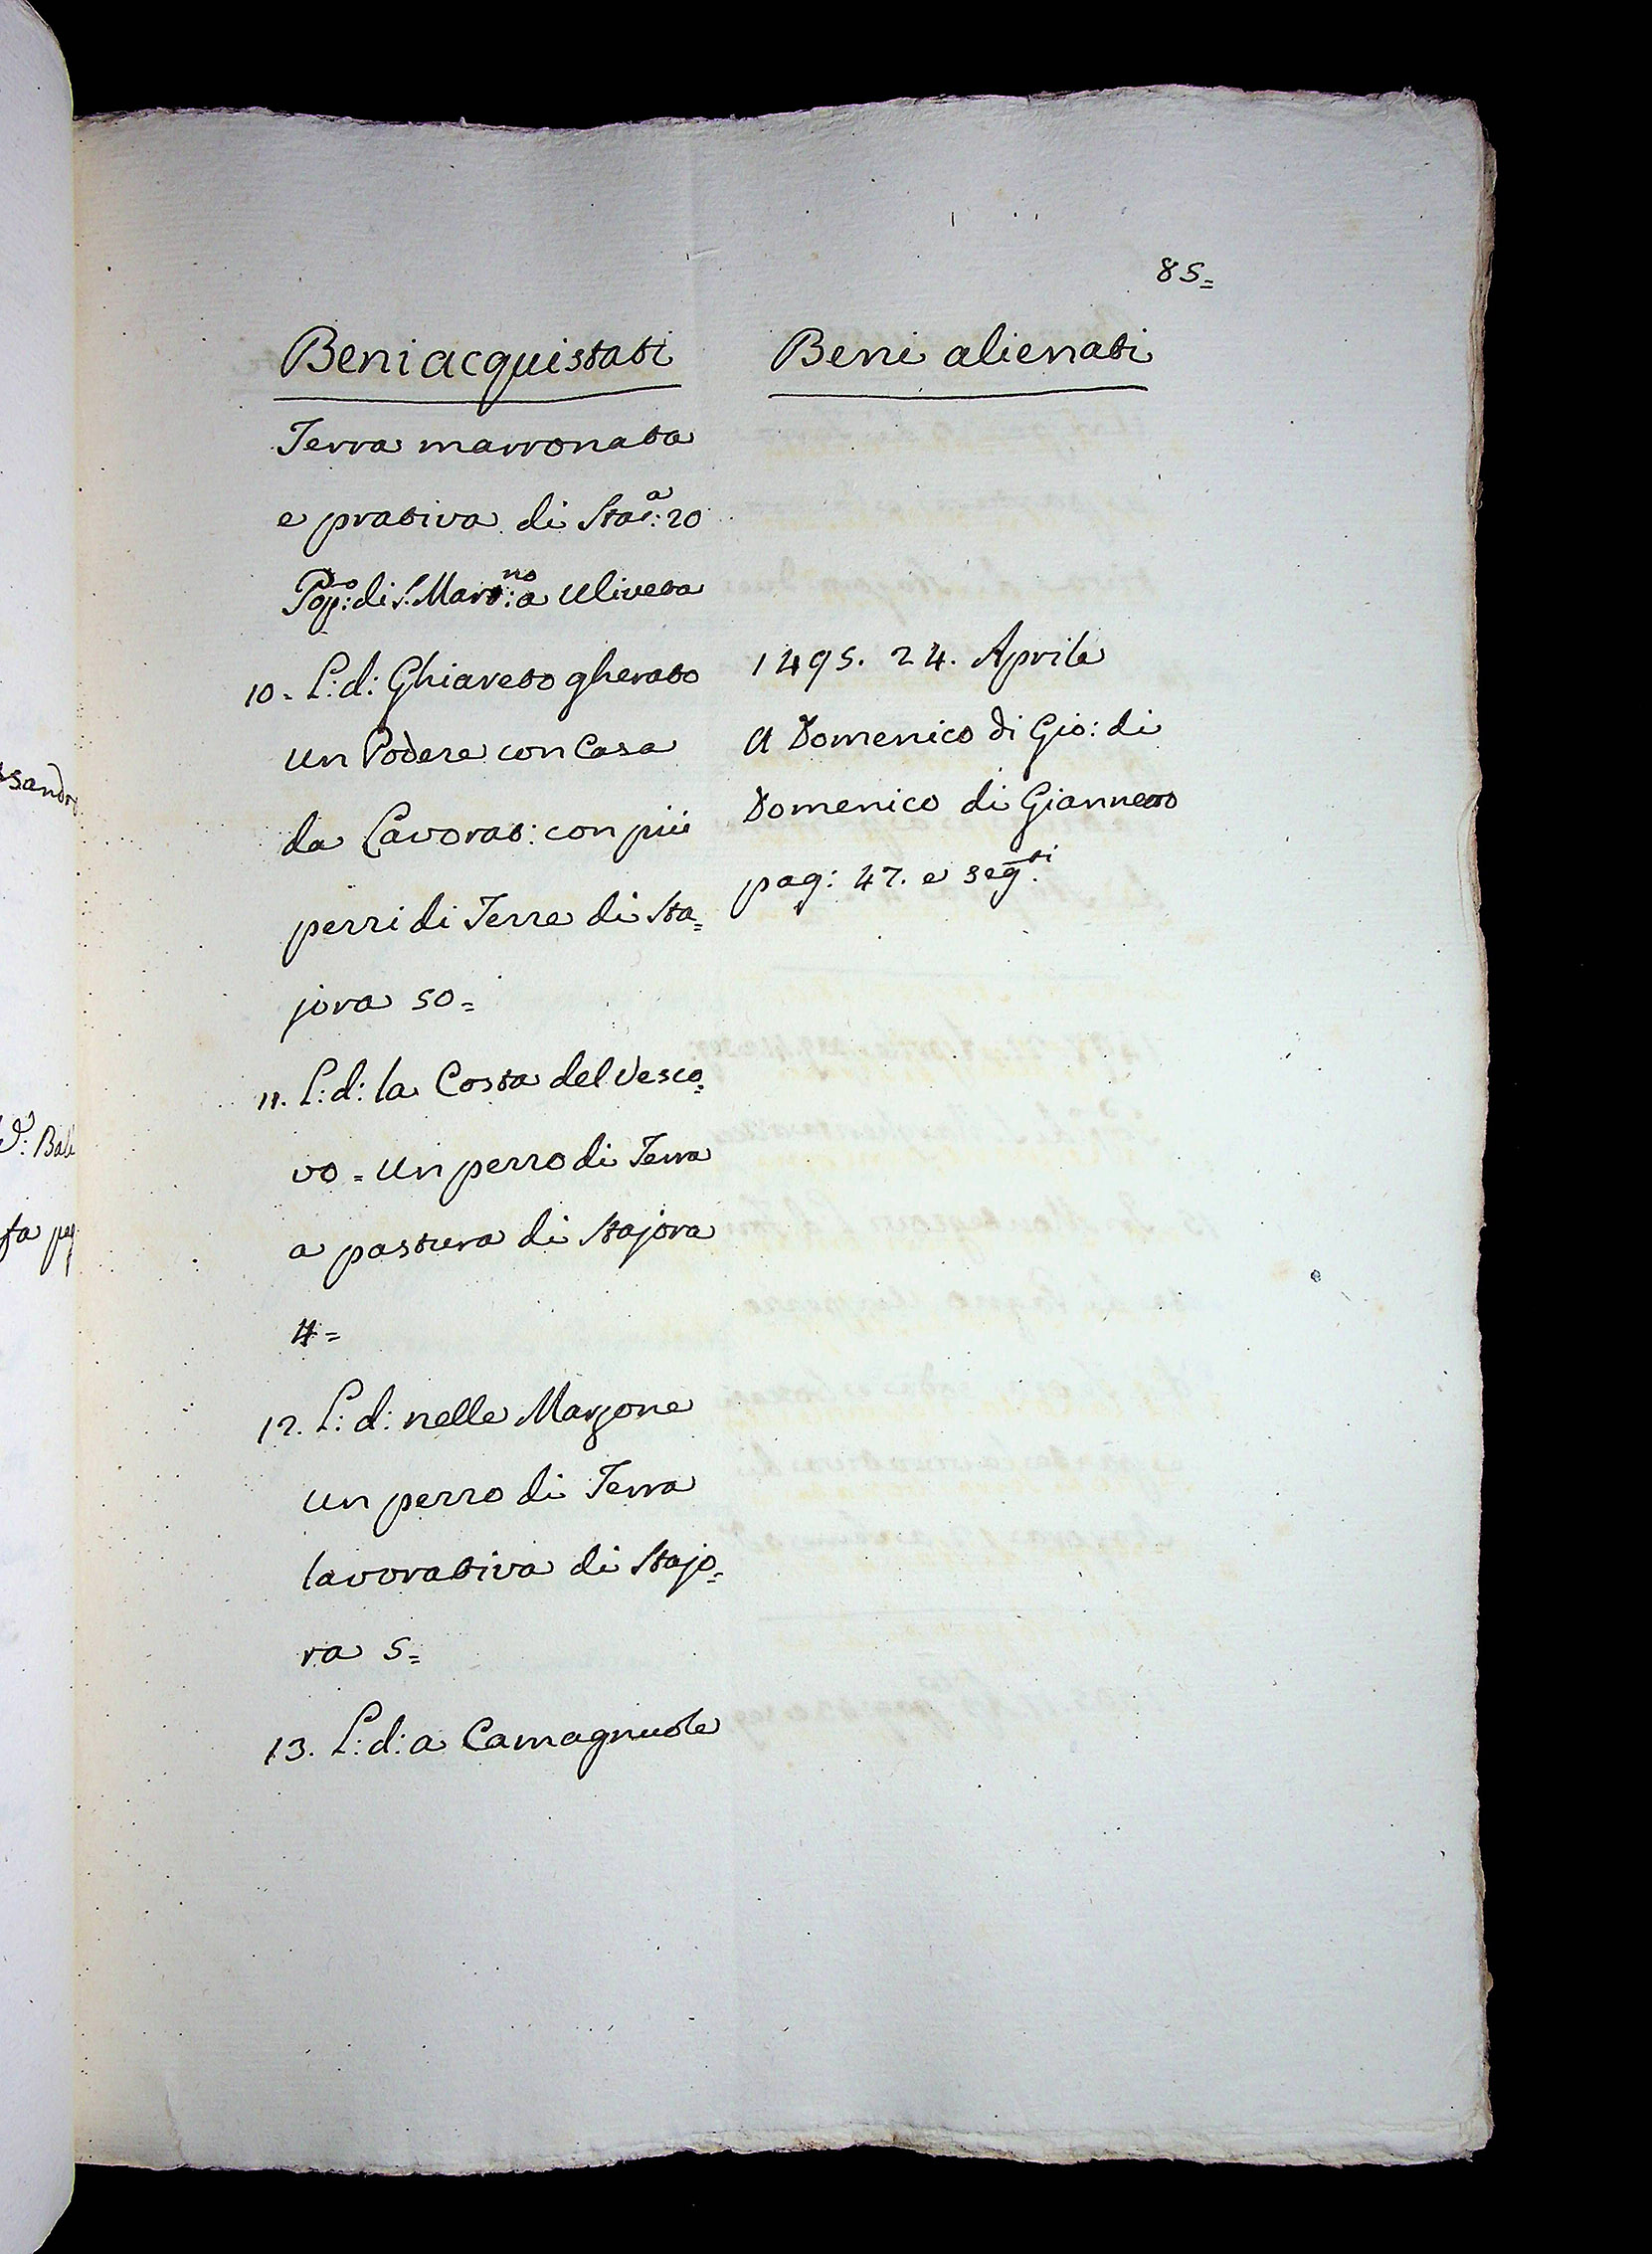 85=
Beni acquistati
Terra marronata
e prativa di Sta:ª 20
Pop:º di S. Mart:no a Uliveta
10= L: d: Ghiareto gherato
un Podere con Casa
da Lavorat: con più
pezzi di Terre di Sta=
jora 50=
11. L: d: la Costa del Vesco=
vo = un pezzo di Terra
a pastura di Stajora
4=
12. L: d: nelle Marzone
un pezzo di Terra
lavorativa di Stajo=
ra 5=
13. L: d: a Camagnuole
Beni alienati
1495. 24. Aprile
A Domenico di Gio: di
Domenico di Giannetto
pag: 47. e seg:ti
ssandro
Bal
fa peg